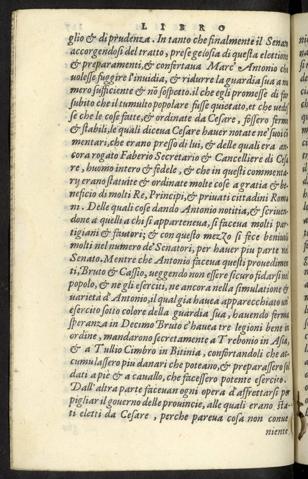 LIBRO
glio & di prudenza. In tanto che finalmente il Senato
accorgendosi del tratto, prese gelosia di questa elettione
& preparamenti, & confortaua Marc' Antonio che
uolesse fuggire l'inuidia, & ridurre la guardia sua a nu
mero sufficiente & nõ sospetto. il che egli promesse di far
subito che il tumulto popolare fusse quietato, et che uedes
se che le cose fatte, & ordinate da Cesare, fossero ferme
& stabili, le quali diceua Cesare hauer notate ne' suoi cõ
mentari, che erano presso di lui, & delle quali era an-
cora rogato Faberio Secretario & Cancelliere di Cesa
re, huomo intero & fidele, & che in questi commenta-
ry erano statuite & ordinate molte cose a gratia & be-
neficio di molti Re, Principi, & priuati cittadini Roma
ni. Delle quali cose dando Antonio notitia, & scriuen-
done a quelli a chi si apparteneua, si faceua molti par-
tigiani & fautori; & con questo mezo si fece beniuoli
molti nel numero de' Senatori, per hauer piu parte in
Senato. Mentre che Antonio faceua questi prouedimen
ti, Bruto & Cassio, ueggendo non essere sicuro fidarsi nel
popolo, & ne gli eserciti, ne ancora nella simulatione &
uarietà d'Antonio, il qual già hauea apparecchiato un'
esercito sotto colore della guardia sua, hauendo ferma
speranza in Decimo Bruto c'hauea tre legioni bene in
ordine, mandarono secretamente a Trebonio in Asia,
& a Tullio Cimbro in Bitinia, confortandoli che ac-
cumulassero piu danari che poteano, & preparassero sol
dati a piè & a cauallo, che facessero potente esercito.
Dall'altra parte faceuan ogni opera d'affrettarsi per
pigliar il gouerno delle prouincie, alle quali erano sta-
ti eletti da Cesare, perche pareua cosa non conue
niente